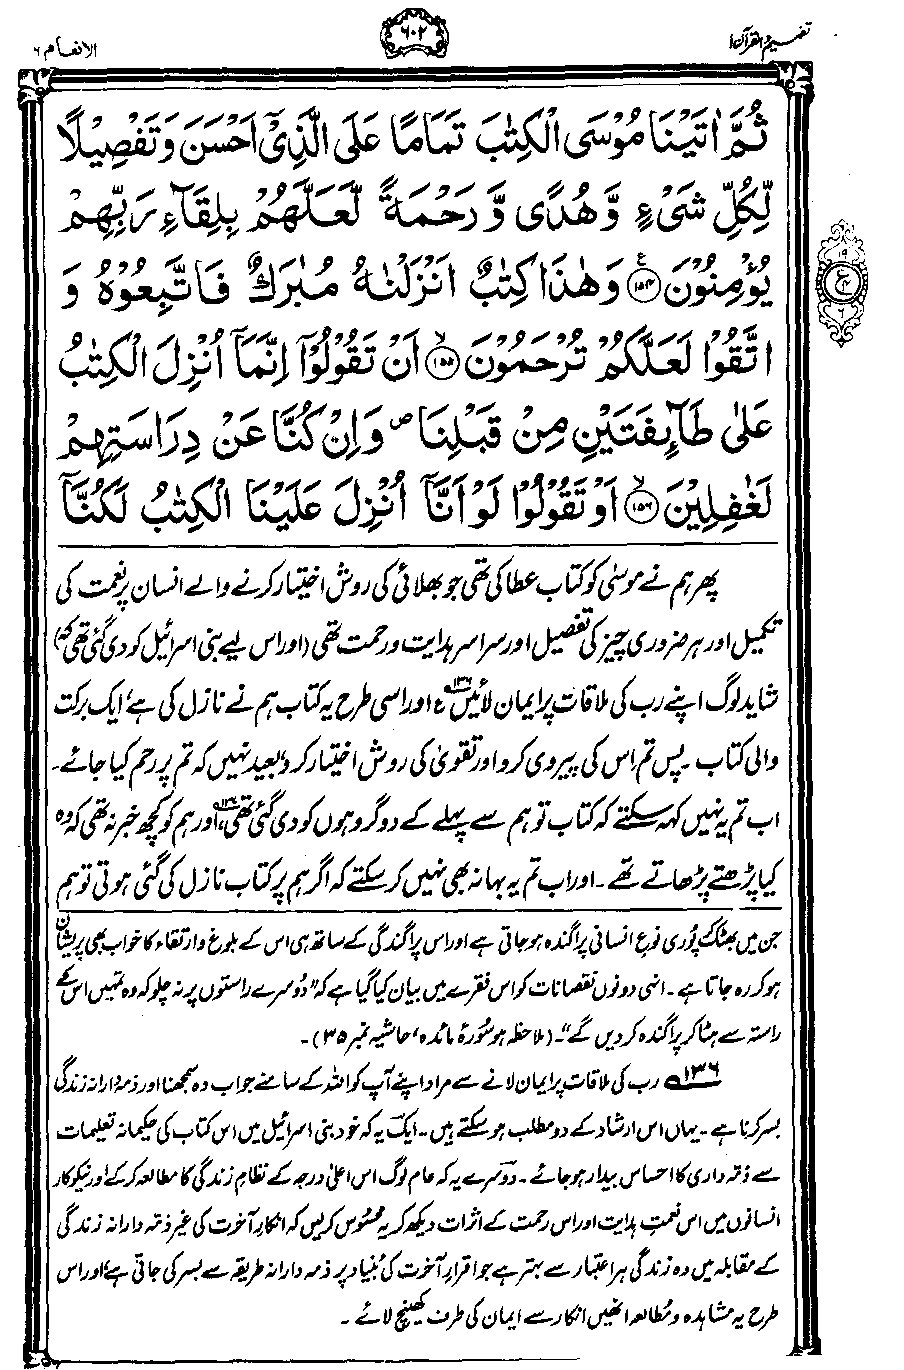 تفہیم القرآن ۱
۶۰۲
الانعام ۶
ثُمَّ اٰتَیْنَا مُوْسَی الْكِتٰبَ تَمَامًا عَلَی الَّذِیْۤ اَحْسَنَ وَ تَفْصِیْلًا
لِّكُلِّ شَیْءٍ وَّ هُدًی وَّ رَحْمَةً لَّعَلَّهُمْ بِلِقَآءِ رَبِّهِمْ
یُؤْمِنُوْنَ ﴿۱۵۴﴾ ع وَ هٰذَا كِتٰبٌ اَنْزَلْنٰهُ مُبٰرَكٌ فَاتَّبِعُوْهُ وَ
اتَّقُوْا لَعَلَّكُمْ تُرْحَمُوْنَ ﴿۱۵۵﴾ۙ اَنْ تَقُوْلُوْۤا اِنَّمَاۤ اُنْزِلَ الْكِتٰبُ
عَلٰی طَآىِٕفَتَیْنِ مِنْ قَبْلِنَا ۪ وَ اِنْ كُنَّا عَنْ دِرَاسَتِهِمْ
لَغٰفِلِیْنَ ﴿۱۵۶﴾ۙ اَوْ تَقُوْلُوْا لَوْ اَنَّاۤ اُنْزِلَ عَلَیْنَا الْكِتٰبُ لَكُنَّاۤ
۱۹
ع
۴
۶
پھر ہم نے موسیٰؑ کو کتاب عطا کی تھی جو بھلائی کی روش اختیار کرنے والے انسان پر نعمت کی
تکمیل اور ہر ضروری چیز کی تفصیل اور سراسر ہدایت و رحمت تھی (اور اس لیے بنی اسرائیل کو دی گئی تھی کہ)
شاید لوگ اپنے رب کی ملاقات پر ایمان لائیں۱۳۶ ع اور اسی طرح یہ کتاب ہم نے نازل کی ہے، ایک برکت
والی کتاب۔ پس تم اس کی پیروی کرو اور تقویٰ کی روش اختیار کرو، بعید نہیں کہ تم پر رحم کیا جائے۔
اب تم یہ نہیں کہہ سکتے کہ کتاب تو ہم سے پہلے کے دو گروہوں کو دی گئی تھی، اور ہم کو کچھ خبر نہ تھی کہ وہ
کیا پڑھتے پڑھاتے تھے۔ اور اب تم یہ بہانہ بھی نہیں کر سکتے کہ اگر ہم پر کتاب نازل کی گئی ہوتی تو ہم
جن میں بھٹک پُوری نوع انسانی پراگندہ ہو جاتی ہے اور اس پراگندگی کے ساتھ ہی اس کے بلوغ و ارتقاء کا خواب بھی پریشان
ہو کر رہ جاتا ہے۔ انہی دونوں نقصانات کو اس فقرے میں بیان کیا گیا ہے کہ ”دُوسرے راستوں پر نہ چلو کہ وہ تمہیں اس کے
راستہ سے ہٹا کر پراگندہ کر دیں گے“۔ (ملاحظہ ہو سُورۂ مائدہ، حاشیہ نمبر ۳۵)۔
۱۳۶ رب کی ملاقات پر ایمان لانے سے مراد اپنے آپ کو اللہ کے سامنے جواب دہ سمجھنا اور ذمہ دارانہ زندگی
بسر کرنا ہے۔ یہاں اس ارشاد کے دو مطلب ہو سکتے ہیں۔ ایک یہ کہ خود بنی اسرائیل میں اس کتاب کی حکیمانہ تعلیمات
سے ذمہ داری کا احساس بیدار ہو جائے۔ دوسرے یہ کہ عام لوگ اس اعلیٰ درجہ کے نظامِ زندگی کا مطالعہ کر کے اور نیکو کار
انسانوں میں اس نعمتِ ہدایت اور اس رحمت کے اثرات دیکھ کر یہ محسُوس کر لیں کہ انکارِ آخرت کی غیر ذمہ دارانہ زندگی
کے مقابلہ میں وہ زندگی ہر اعتبار سے بہتر ہے جو اقرارِ آخرت کی بُنیاد پر ذمہ دارانہ طریقہ سے بسر کی جاتی ہے، اور اس
طرح یہ مشاہدہ و مُطالعہ انہیں انکار سے ایمان کی طرف کھینچ لائے۔